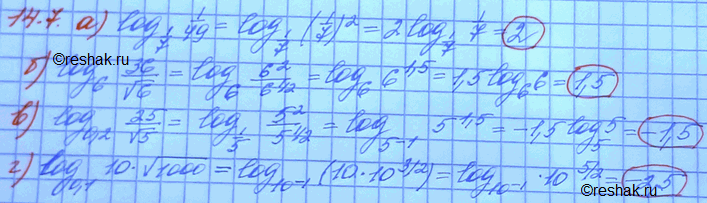 14.7. а) log_{1/7} 1/49 = log_{1/7} (1/7)² = 2 log_{1/7} 1/7 = 2
©reshak.ru
б) log₆ 36/√6 = log₆ 6²/6^{1/2} = log₆ 6^{1,5} = 1,5 log₆ 6 = 1,5
в) log_{0,2} 25/√5 = log_{1/5} 5²/5^{1/2} = log_{5⁻¹} 5^{1,5} = -1,5 log₅ 5 = -1,5
г) log_{0,1} 10·√1000 = log_{10⁻¹} (10·10^{3/2}) = log_{10⁻¹} ·10^{5/2} = -2,5
©reshak.ru